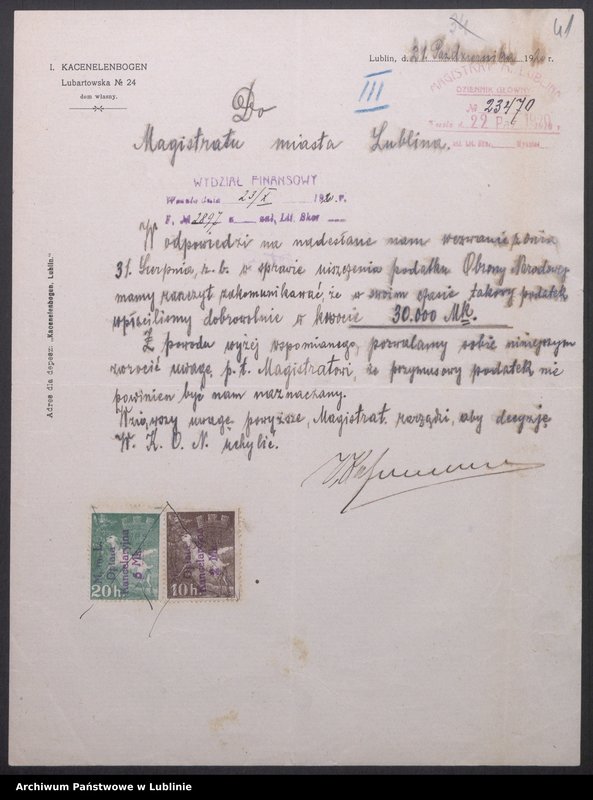 34
41
I. KACENELENBOGEN
Lubartowska № 24
dom własny.
Lublin, d. 21 Października 1920 r.
MAGISTRAT M. LUBLINA
DZIENNIK GŁÓWNY
№ 23470
22 Paź 1920
III
Do
Magistratu miasta Lublina.
WYDZIAŁ FINANSOWY
Weszło dnia 23/X 1920 r.
F. № 2897 zał. Lit. Skor
W odpowiedzi na nadesłane nam wezwanie z dnia
31. Sierpnia, r. b. w sprawie uiszczenia podatku Obrony Narodowej
mamy zaszczyt zakomunikować, że w swoim czasie takowy podatek
wpłaciliśmy dobrowolnie w kwocie 30.000 Mk.
Z powodu wyżej wspomianego, pozwalamy sobie niniejszym
zwrócić uwagę p.t. Magistratowi, że przymusowy podatek nie
powinien być nam naznaczany.
Wziąwszy uwagę powyższe, Magistrat zarządzi, aby decyzję
W. K. O. N. uchylić.
Adres dla depesz: „Kacenelenbogen, Lublin."
M. m. L.
Opłata
Kancelaryjna
5 Mk.
20 h
Opłata
Kancelaryjna
10 h
Archiwum Państwowe w Lublinie